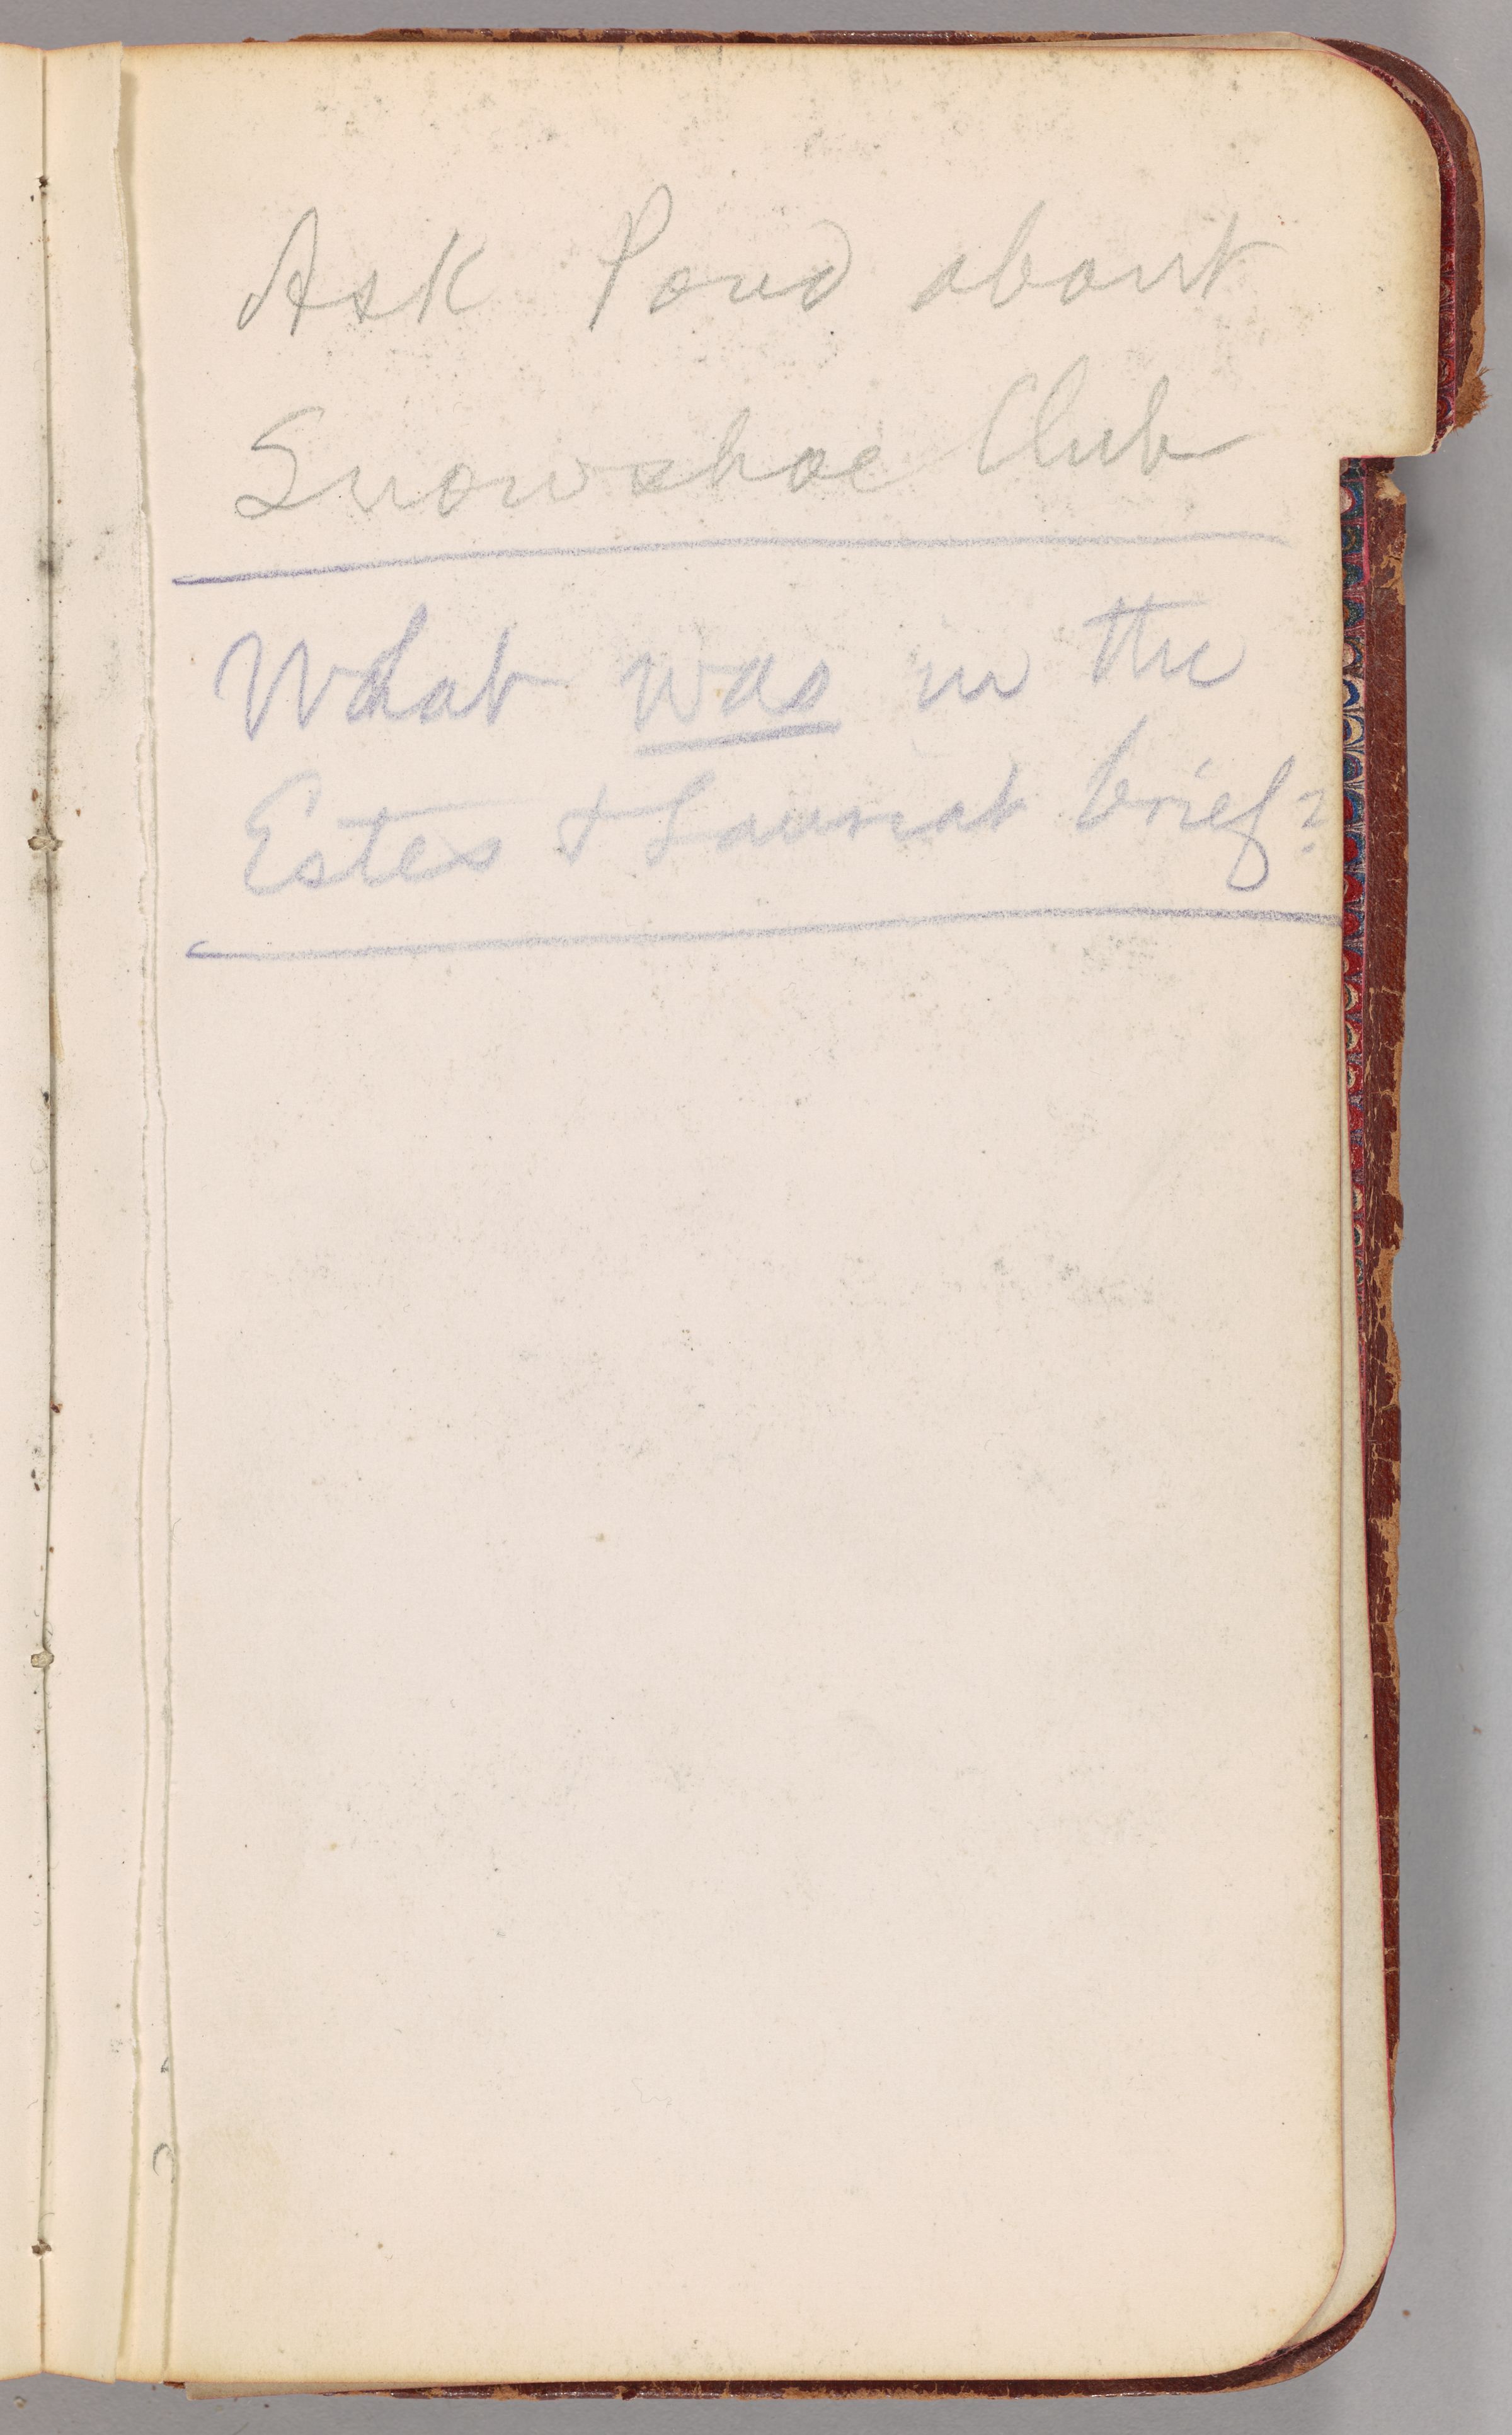 Ask Pond about
Snowshoe Club
What was in the
Estes & Lauriat brief?